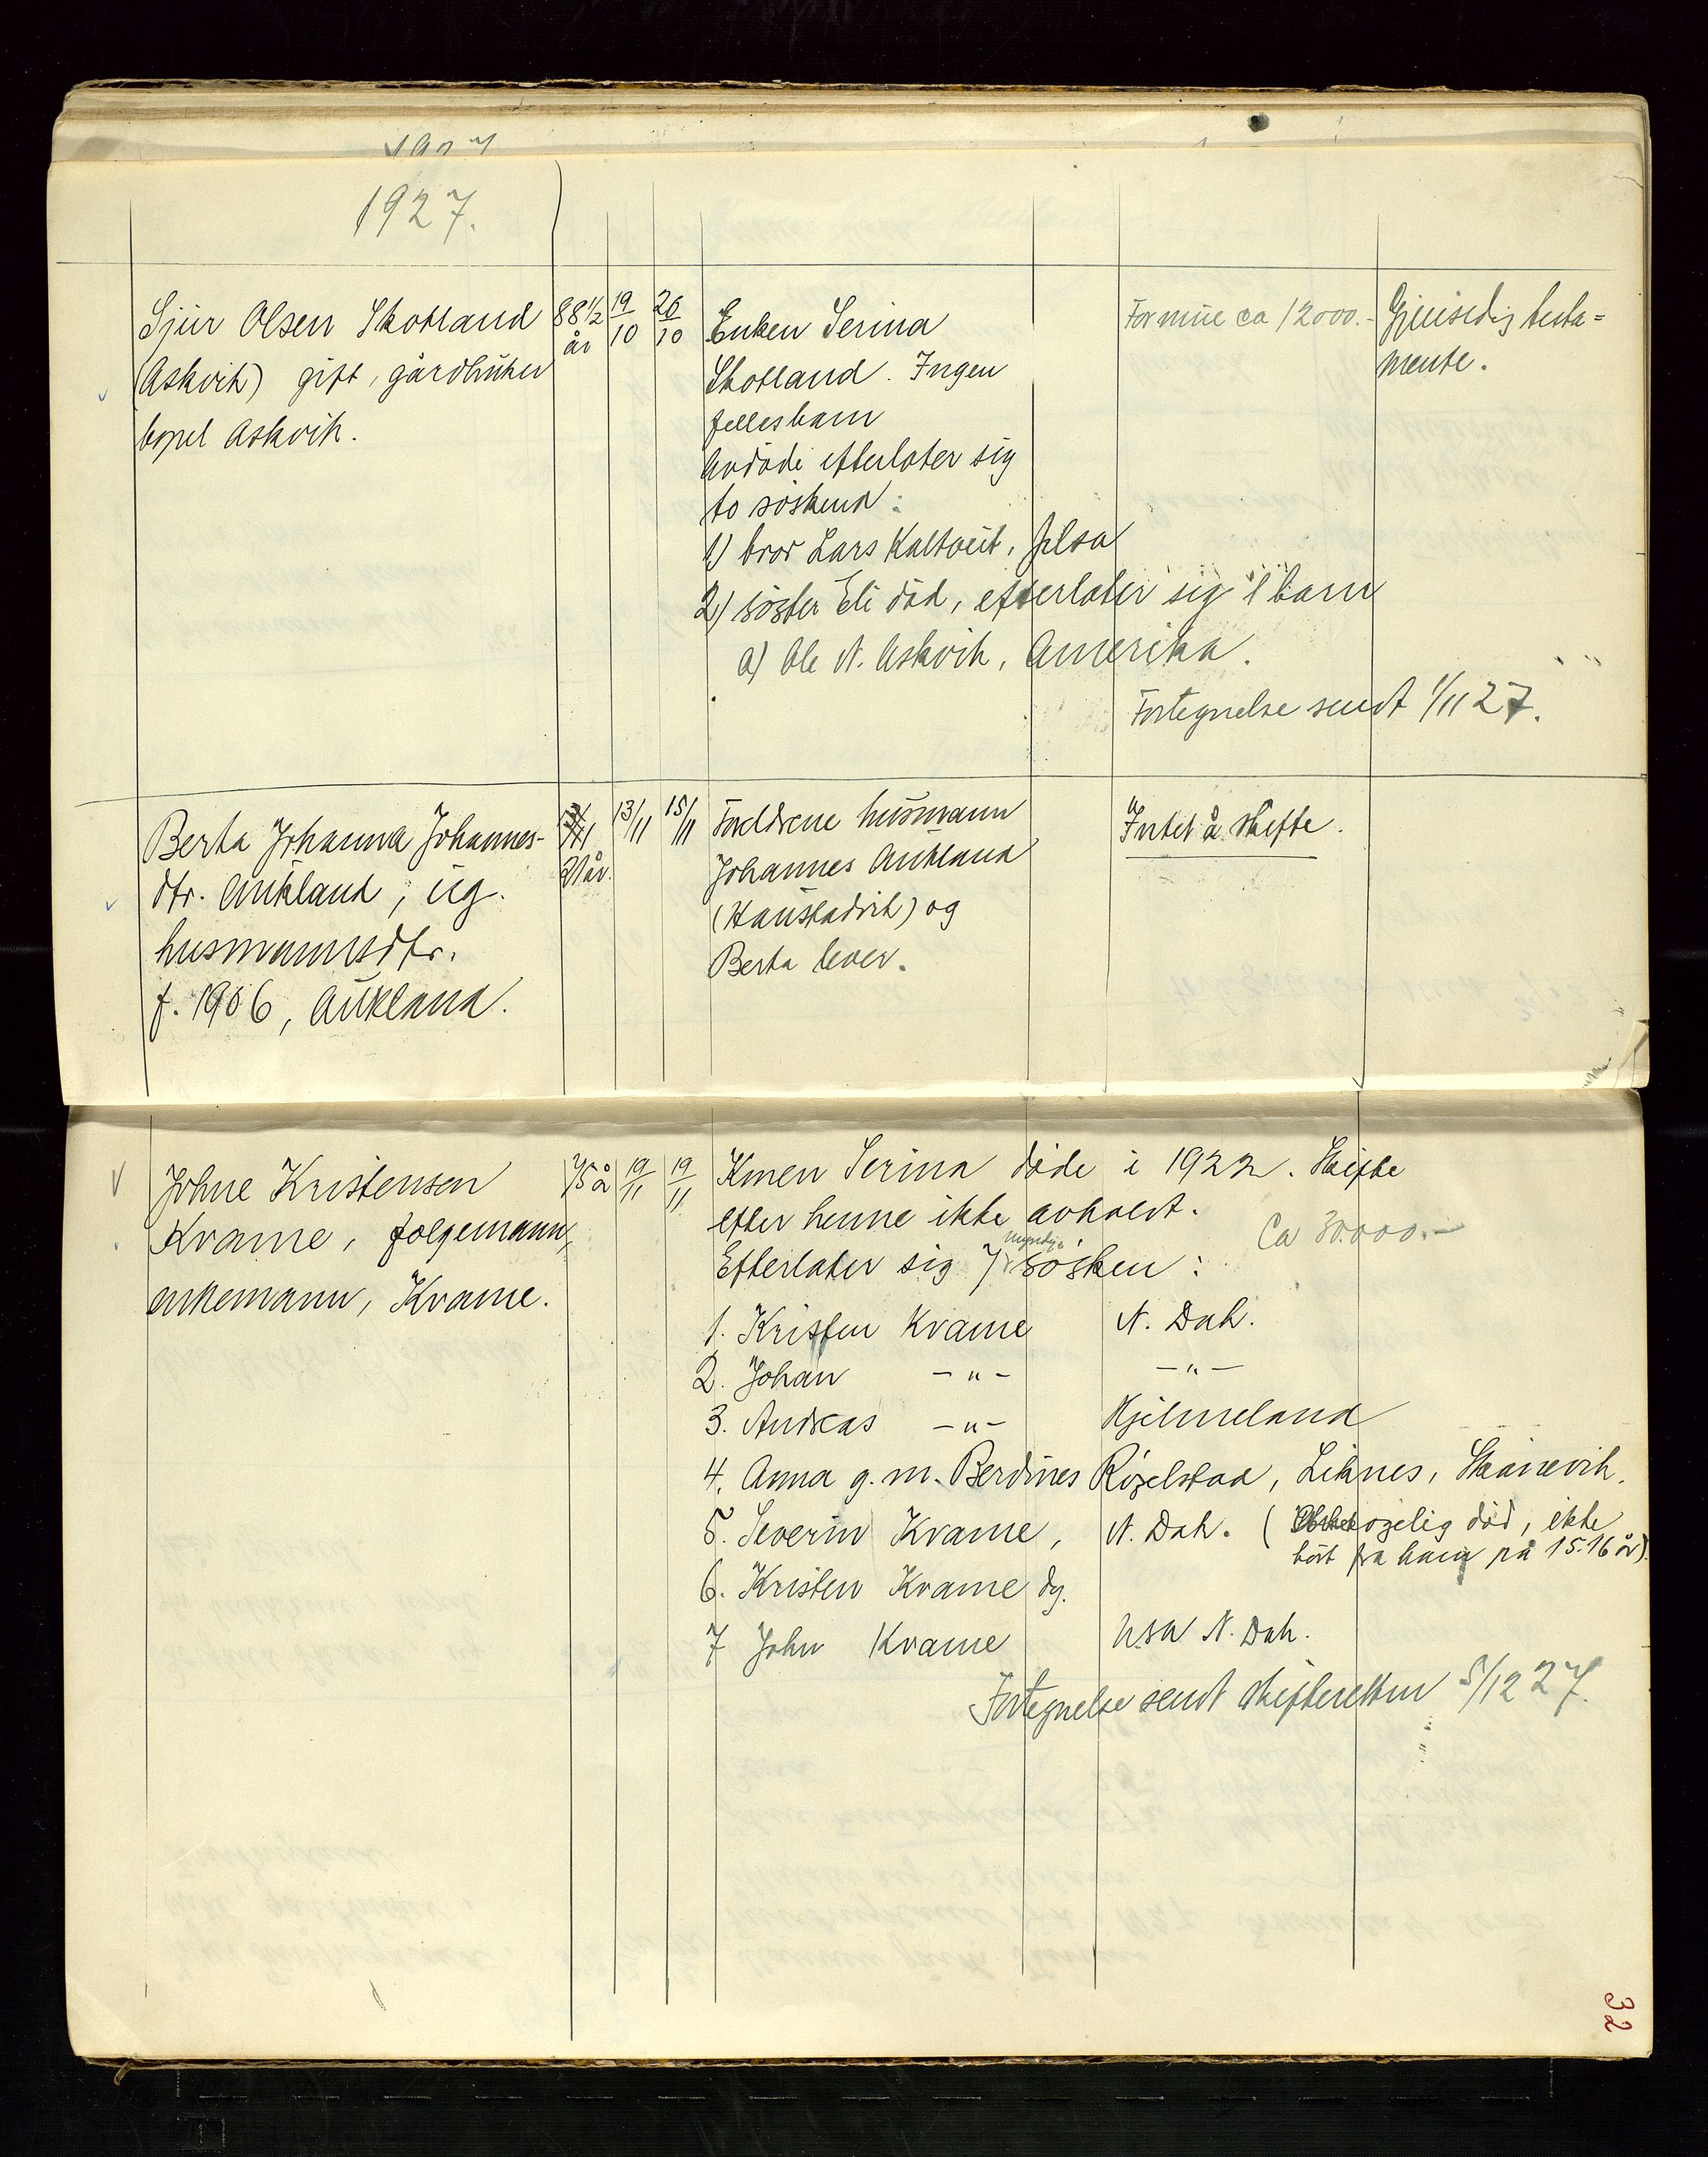 1927.
Sjur Olsen Skotland
(Askvik) gift, gårdbruker
bopel Askvik.
88 1/2 år
19/10
26/10
Enken Serina
Skotland. Ingen
fellesbarn
Avdöde efterlater sig
to söskend:
1) bror Lars Kaltveit, Jelsa
2) söster Eli död, efterlater sig 1 barn
a) Ole N. Askvik, Amerika.
Formue ca 12000.-
Gjensidig testa=
mente.
Fortegnelse sendt 1/11 27.
Berta Johanna Johannes-
dtr. Aukland, ug.
husmannsdtr.
f. 1906, Aukland.
21 år.
13/11
15/11
Foreldrene husmann
Johannes Aukland
(Haustadvik) og
Berta lever.
Intet å skifte.
Johne Kristensen
Kvame, folgemann,
enkemann, Kvame.
75 å
19/11
19/11
Konen Serina döde i 1922. Skifte
efter henne ikke avholdt.
Ca 30.000.-
Efterlater sig 7 myndige sösken:
1. Kristen Kvame N. Dak.
2. Johan -"- -"-
3. Andreas -"- Hjelmeland
4. Anna g. m. Berdines Röxelstad, Liknes, Skånevik.
5. Severin Kvame, N. Dak. ( død, ikke
hört fra ham på 15-16 år).
6. Kristen Kvame dg.
7 John Kvame USA N. Dak.
Fortegnelse sendt skifteretten 5/12 27.
32